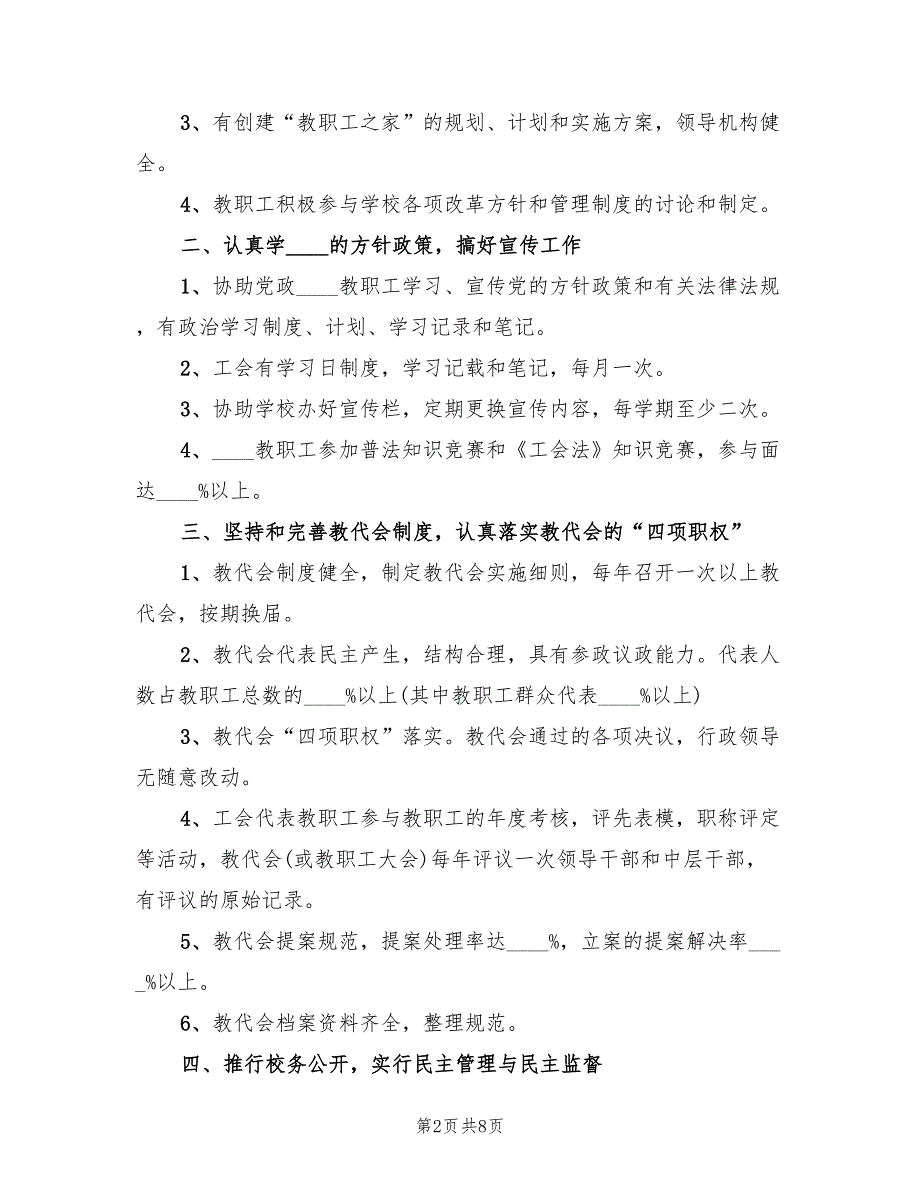 3、有创建“教职工之家”的规划、计划和实施方案，领导机构健
全。
4、教职工积极参与学校各项改革方针和管理制度的讨论和制定。
二、认真学____的方针政策，搞好宣传工作
1、协助党政____教职工学习、宣传党的方针政策和有关法律法规
，有政治学习制度、计划、学习记录和笔记。
2、工会有学习日制度，学习记载和笔记，每月一次。
3、协助学校办好宣传栏，定期更换宣传内容，每学期至少二次。
4、____教职工参加普法知识竞赛和《工会法》知识竞赛，参与面
达____%以上。
三、坚持和完善教代会制度，认真落实教代会的“四项职权”
1、教代会制度健全，制定教代会实施细则，每年召开一次以上教
代会，按期换届。
2、教代会代表民主产生，结构合理，具有参政议政能力。代表人
数占教职工总数的____%以上(其中教职工群众代表____%以上)
3、教代会“四项职权”落实。教代会通过的各项决议，行政领导
无随意改动。
4、工会代表教职工参与教职工的年度考核，评先表模，职称评定
等活动，教代会(或教职工大会)每年评议一次领导干部和中层干部，
有评议的原始记录。
5、教代会提案规范，提案处理率达____%，立案的提案解决率___
_%以上。
6、教代会档案资料齐全，整理规范。
四、推行校务公开，实行民主管理与民主监督
第2页 共8页